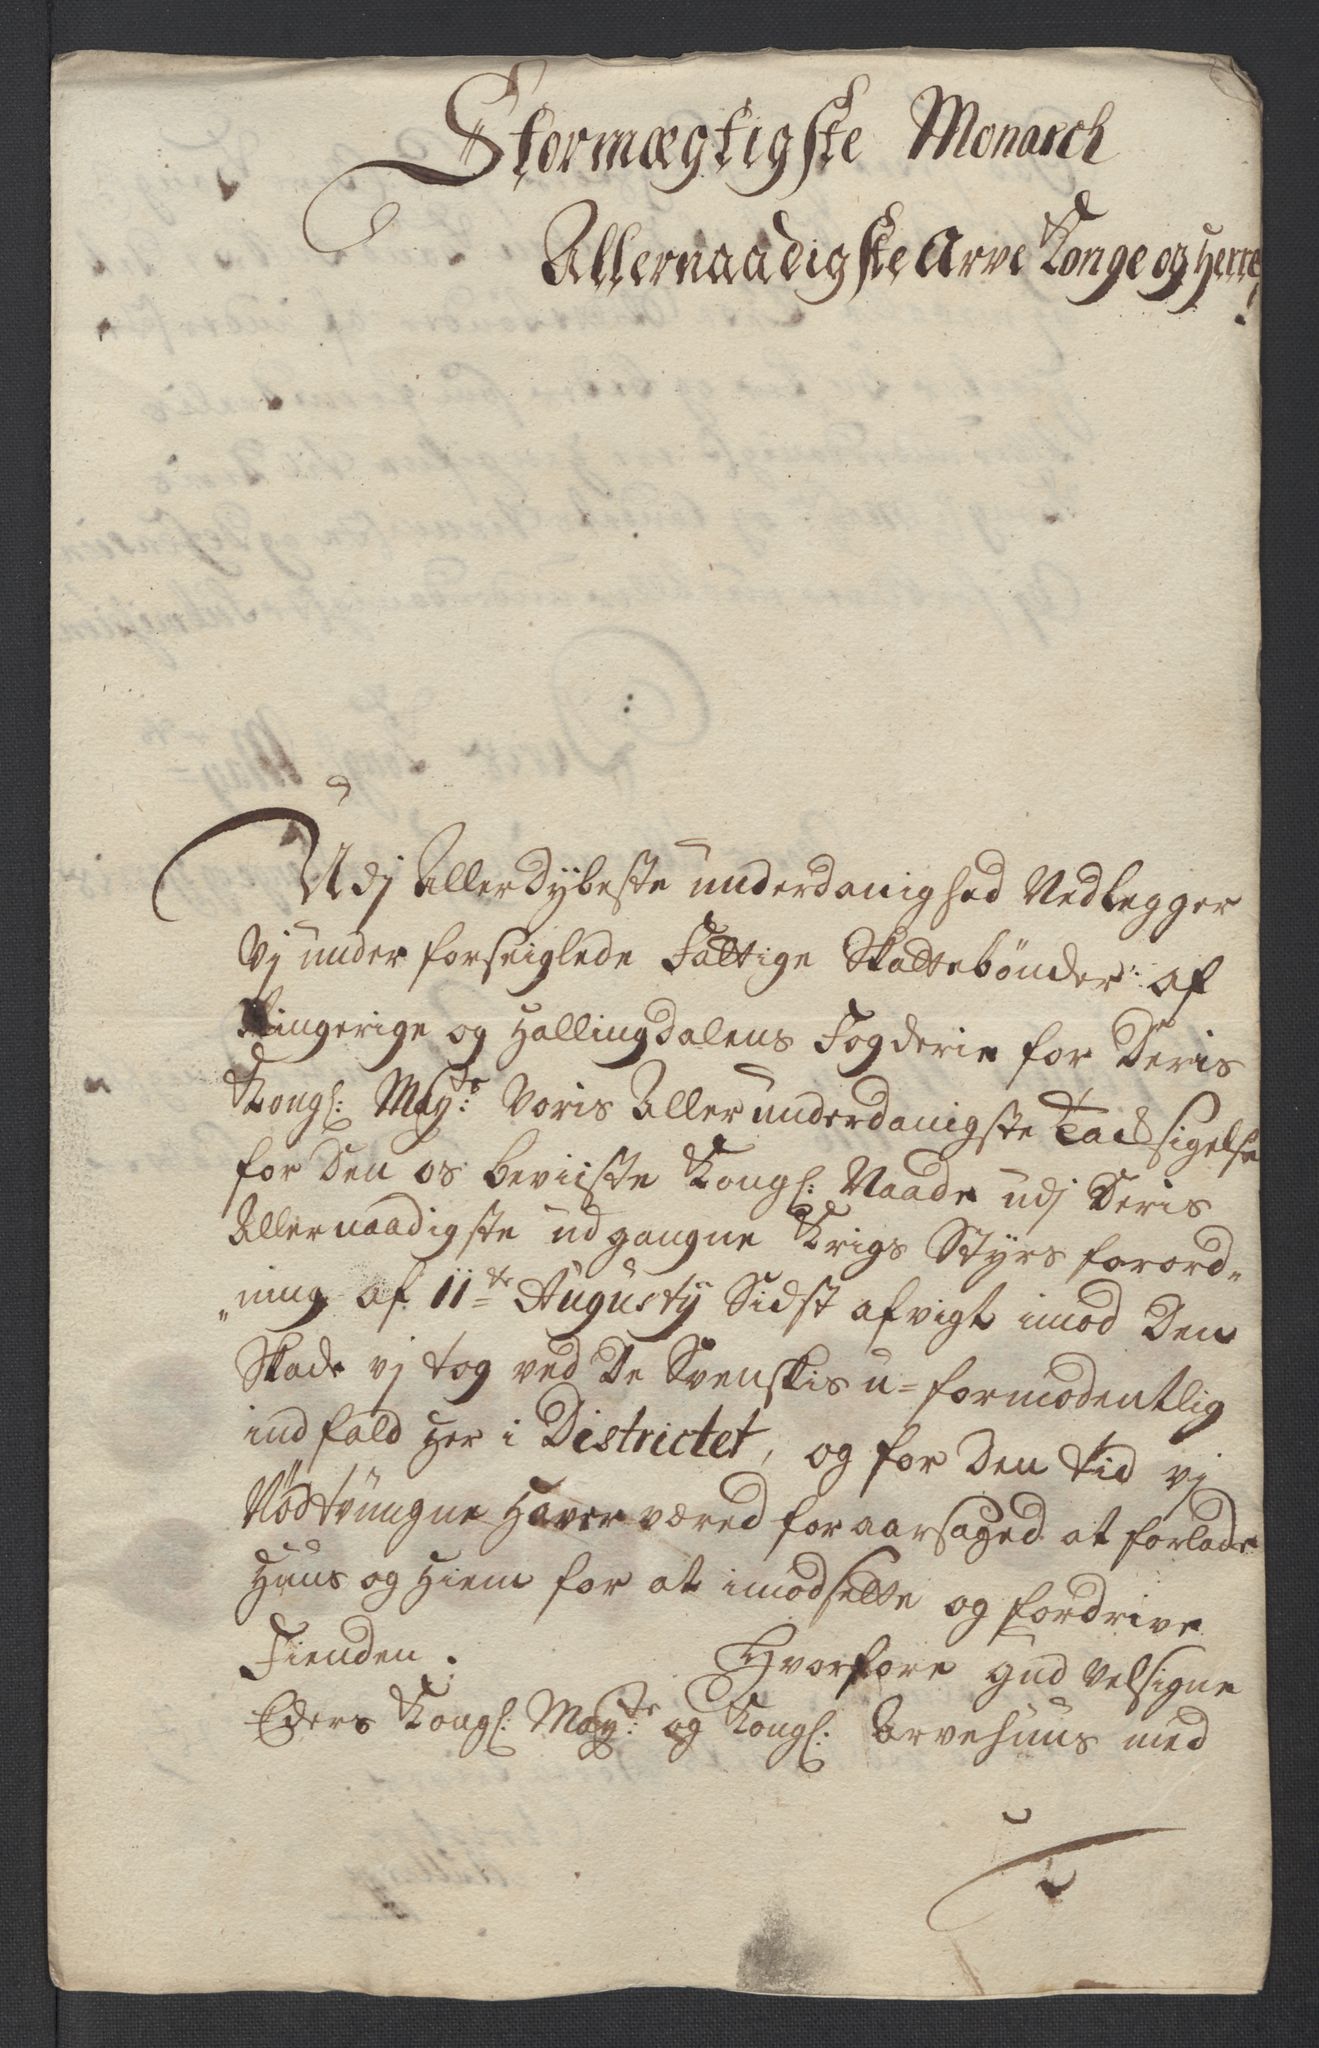 Stormægtigste Monarch
Allernaadigste Arve Konge og Herre!
Udj Allerdybeste underdanighed Nedlegger
Vj under forseiglede Fattige Skattebønder af
Ringerige og Hallingdalens Fogderie for Deris
Kongl: May:ts Voris Allerunderdanigste Tacksigelse
for Den os beviiste Kongl: Naade udj Deris
Allernaadigste udgangne Krigs Styrs forord-
„ning af 11te Augustij Sidst afvigt imod Den
Skade vj tog ved De Svenskis u-formodentlig
indfald Her i Districtet, og for Den tid vj
Nødtvungne Haver væred foraarsaged at forlade
Huus og Hiem for at imodsette og fordrive
Fienden. Hvorfore Gud Velsigne
Eders Kongl: May:ts og Kongl: Arvehuus med